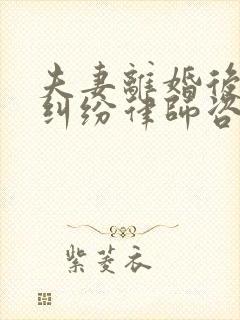 夫妻離婚後
糾紛律師咨
紫菱衣